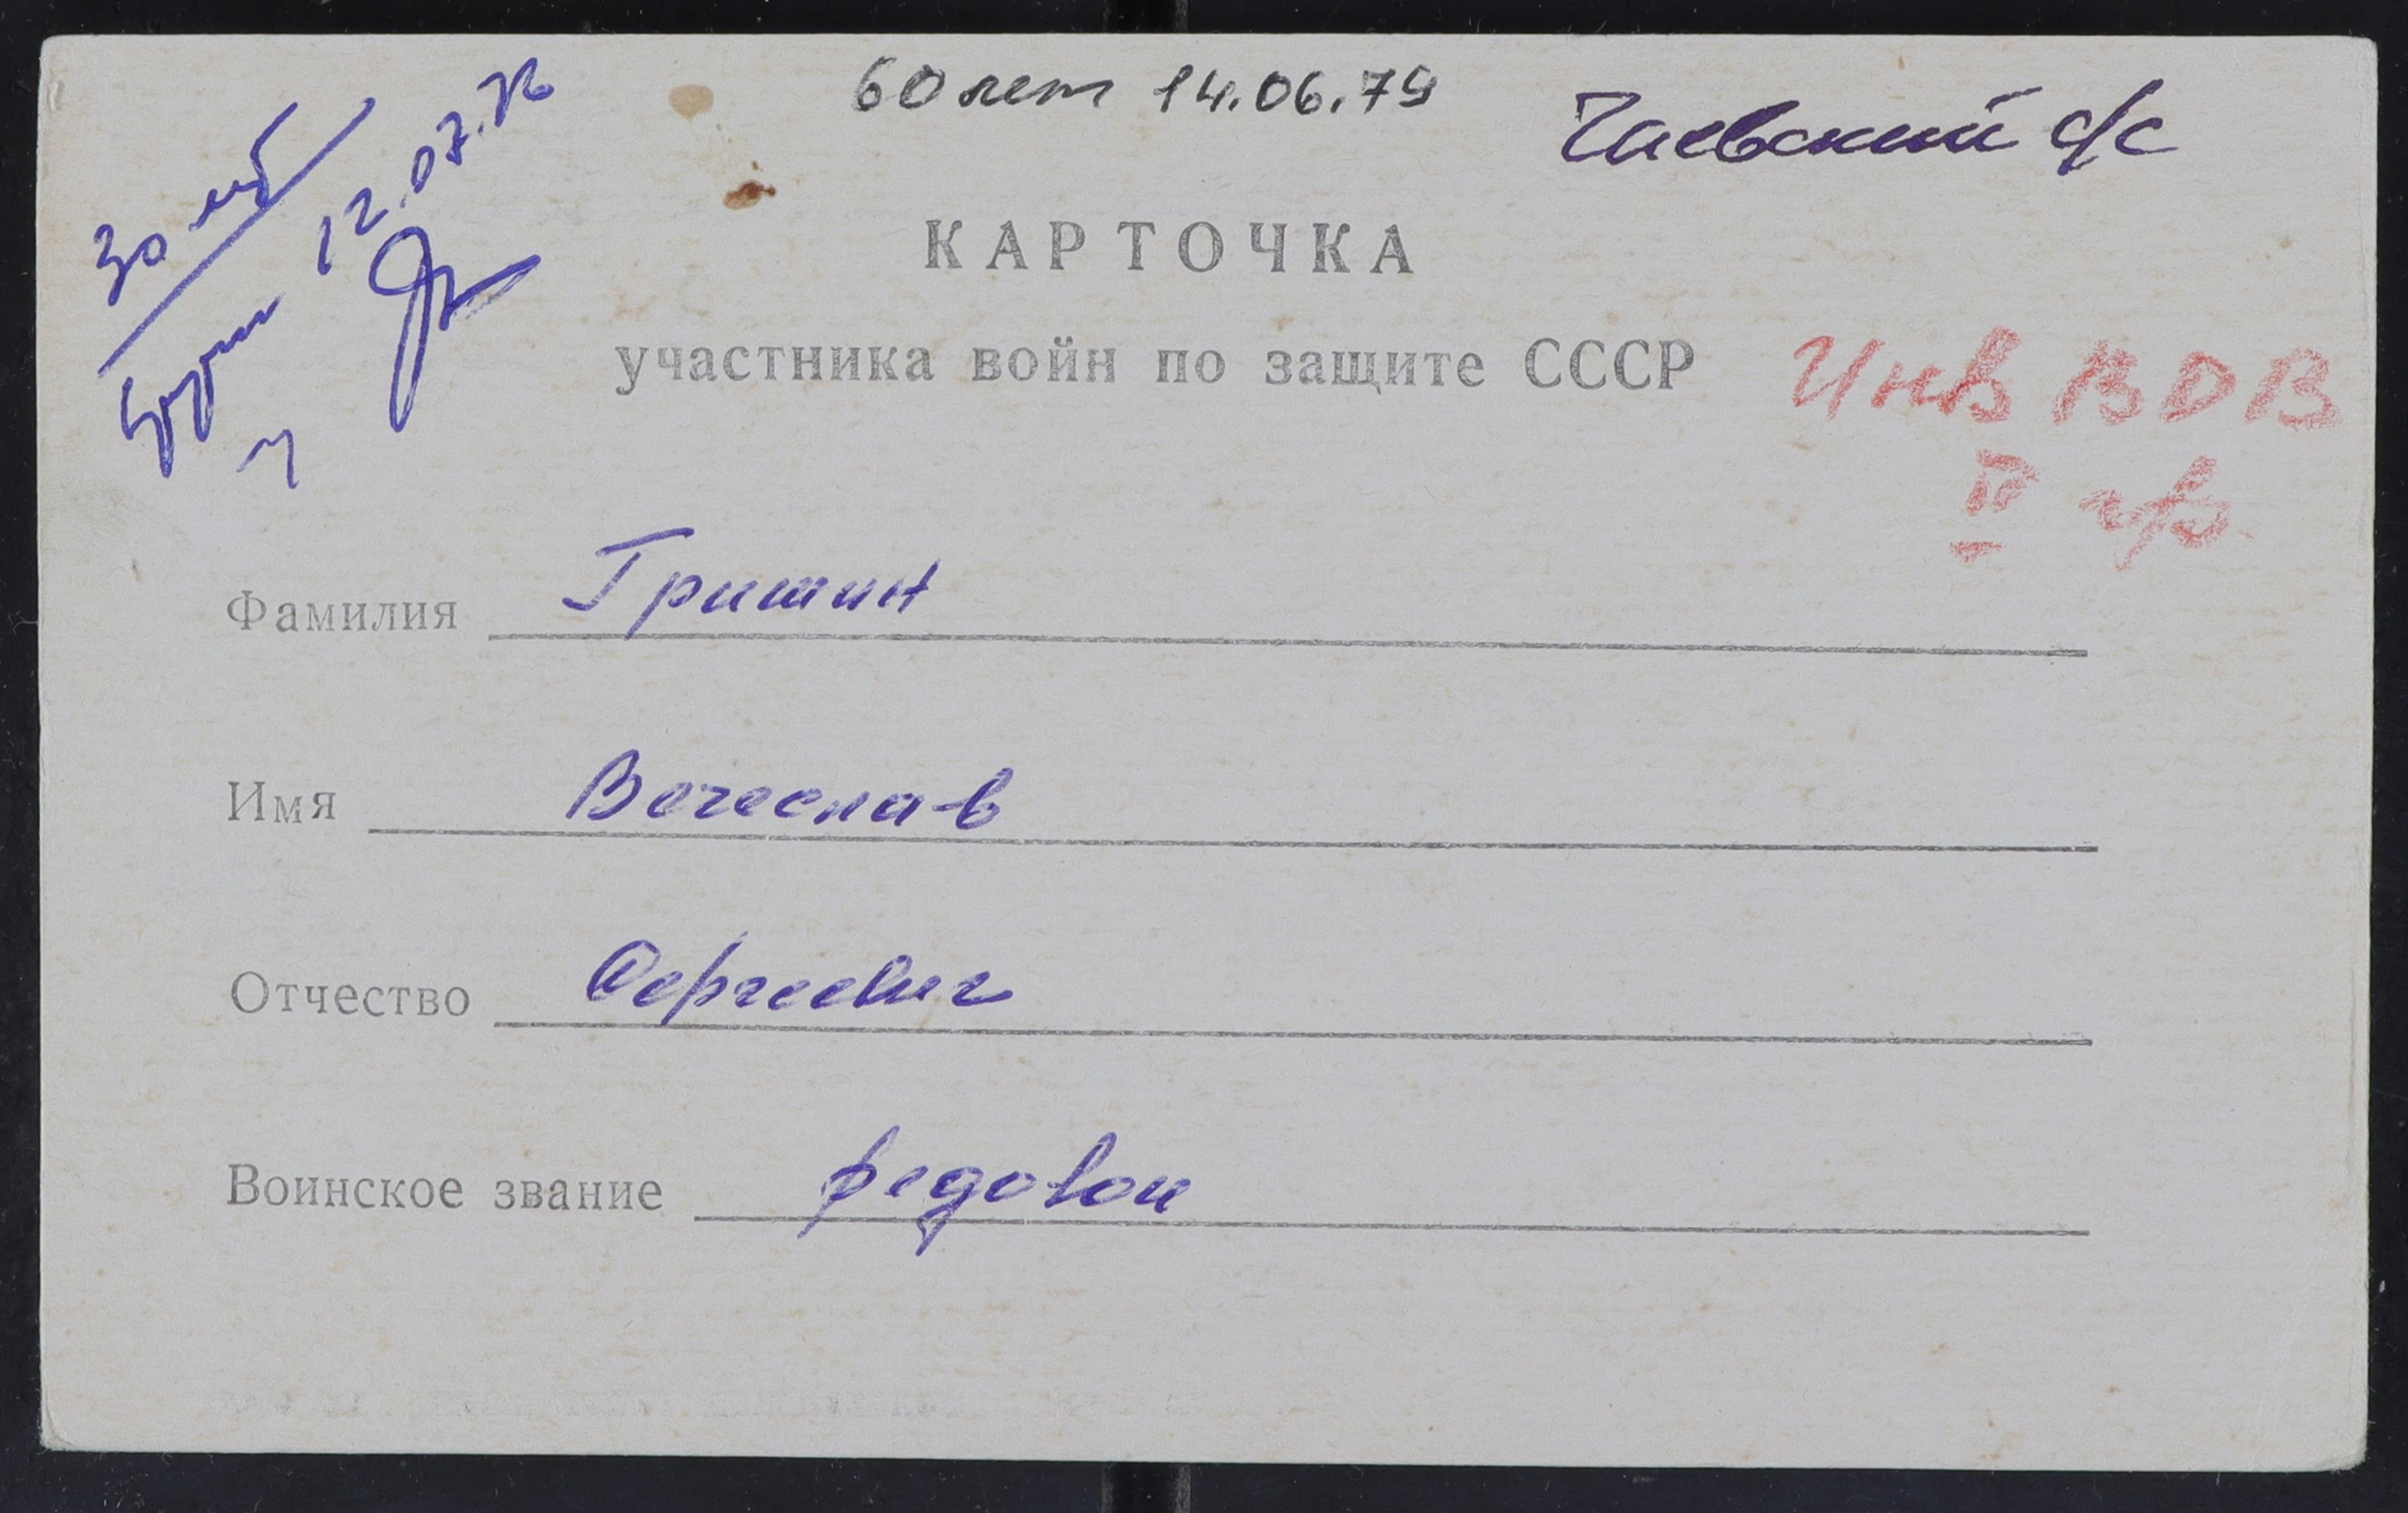 60 лет 14.06.79
Гаевский с/с
12.07.76
КАРТОЧКА
участника войн по защите СССР
Инв ВОВ
II гр.
Фамилия Гришин
Имя Вечеслав
Отчество Сергеевич
Воинское звание редовои